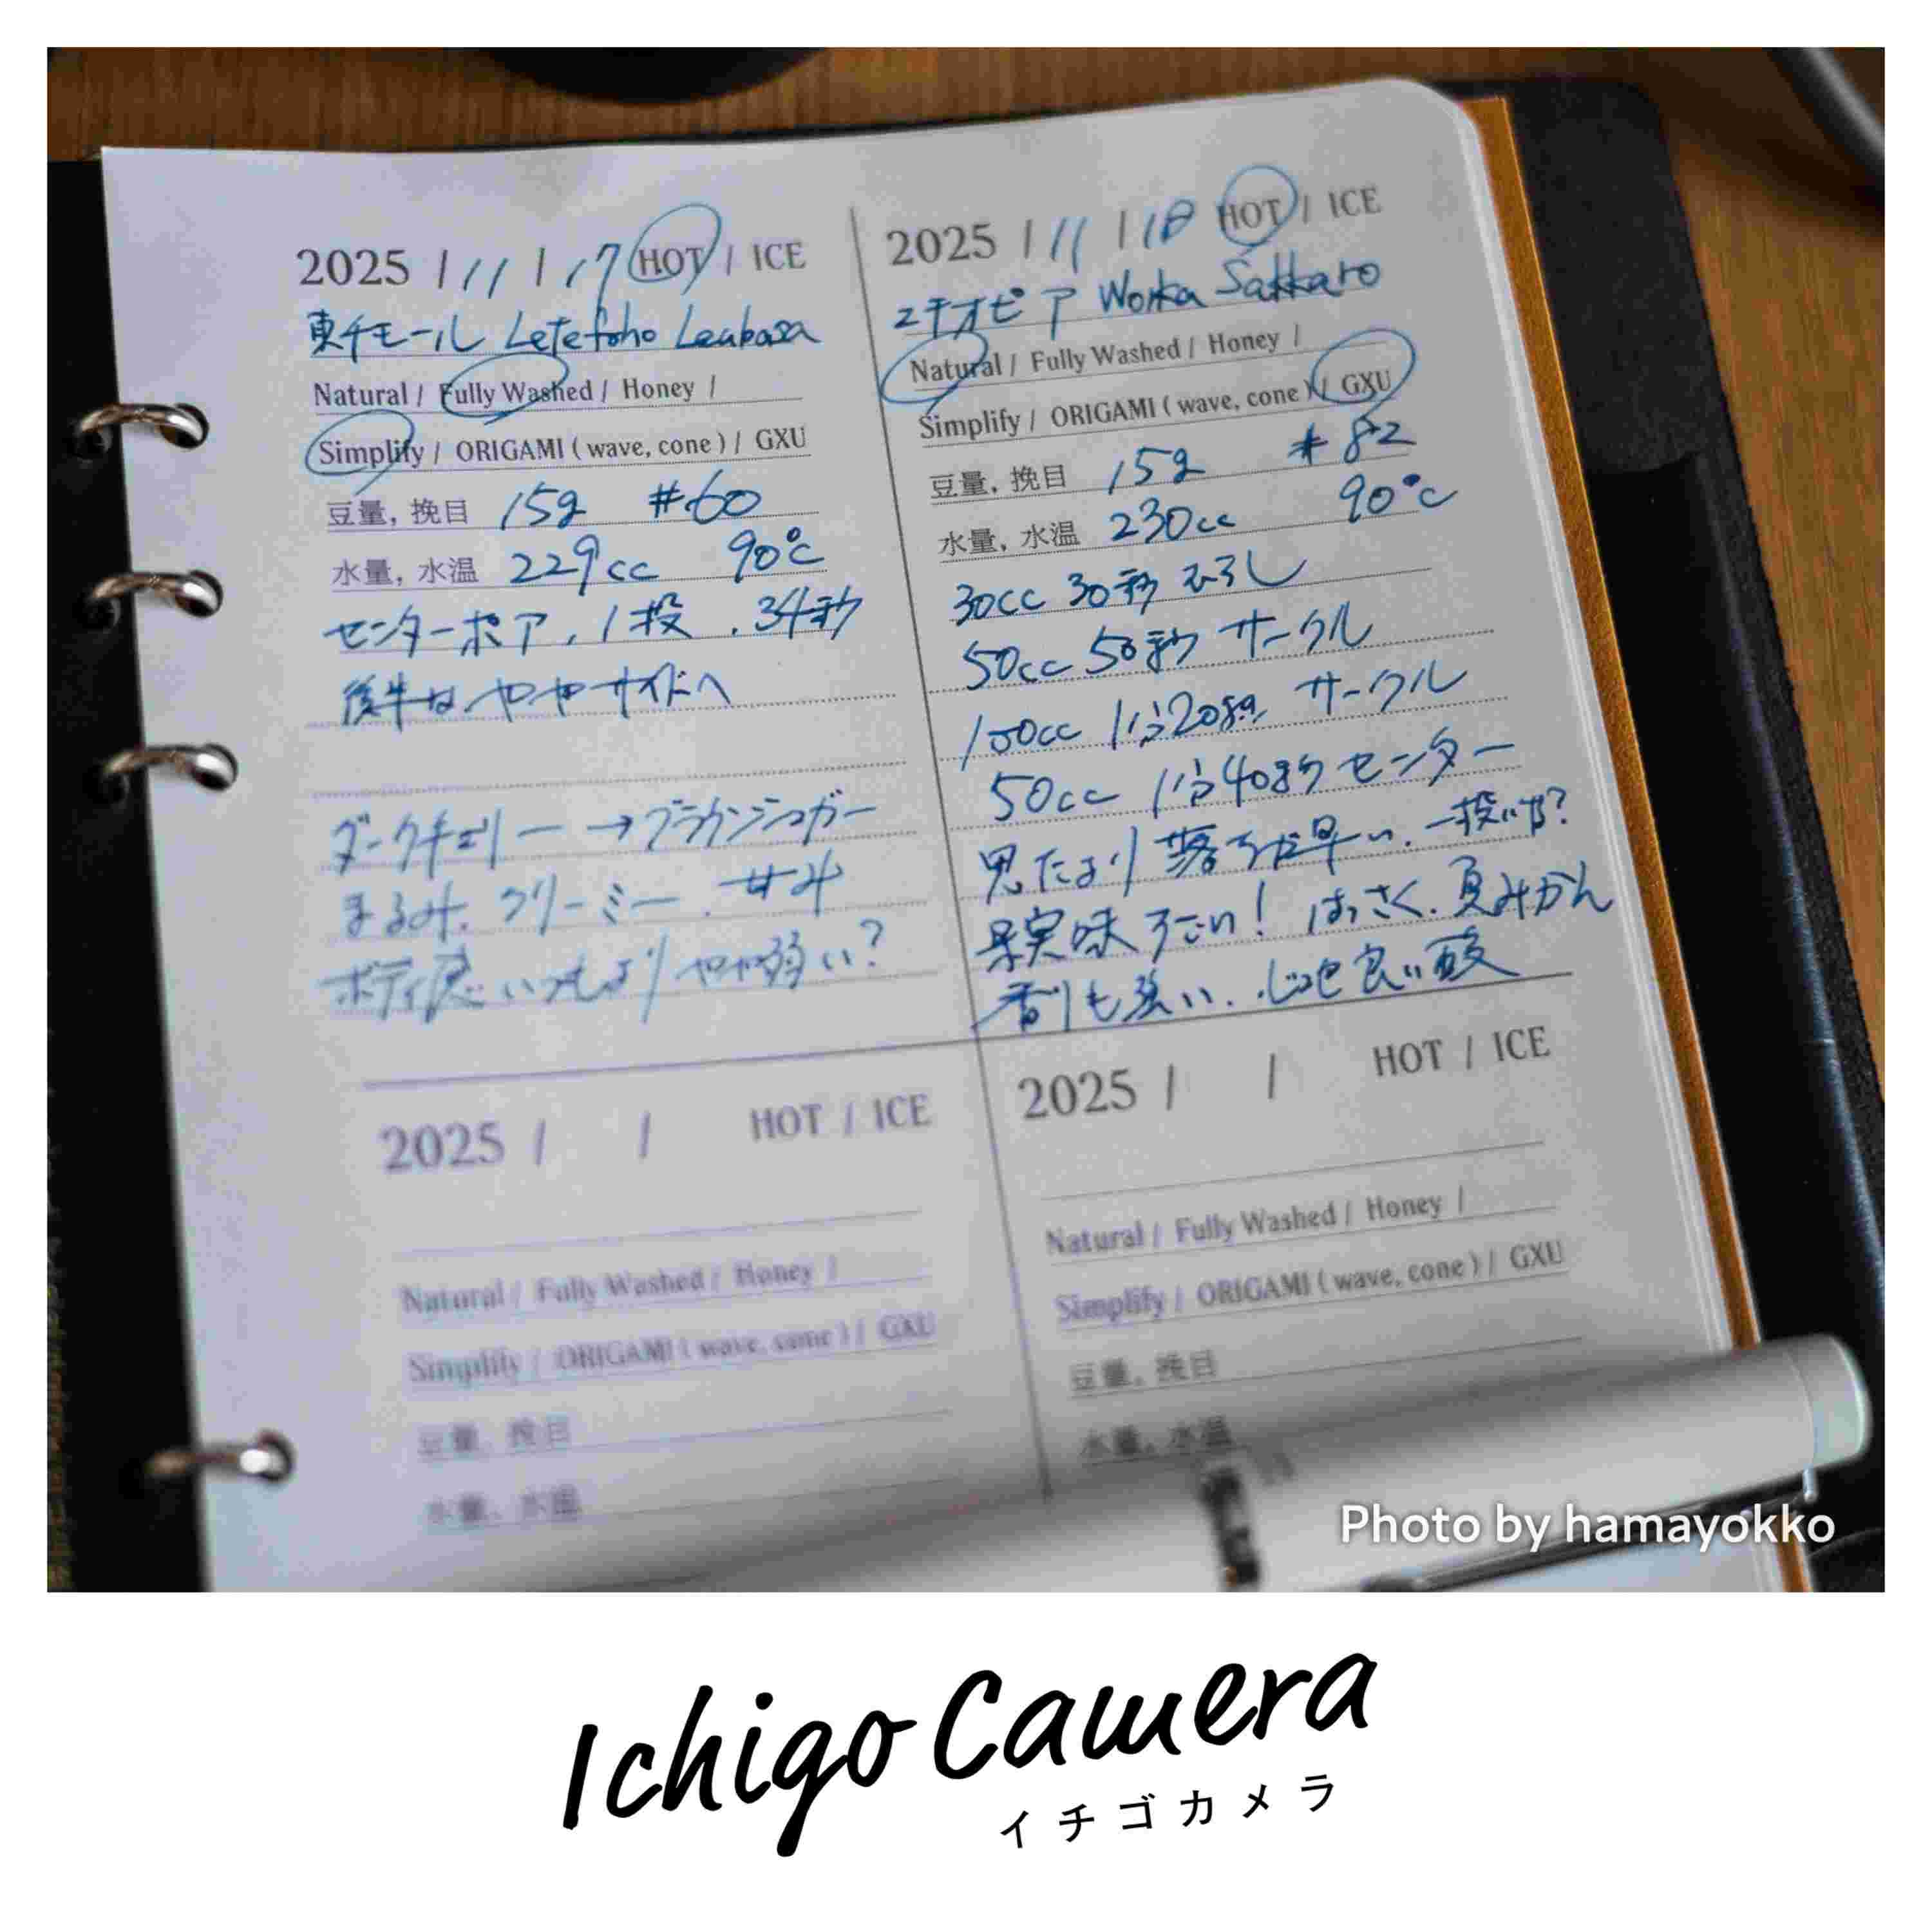 2025 / 11 / 17 HOT / ICE
東チモール Letefoho Leubasa
Natural / Fully Washed / Honey /
Simplify / ORIGAMI ( wave, cone ) / GXU
豆量, 挽目 15g #60
水量, 水温 229cc 90℃
センターポア. 1投. 34秒
後半は やや サイドへ
ダークチェリー → ブラウンシュガー
まるみ. クリーミー. 甘み
ボディ感 いつもより やや弱い?
2025 / 11 / 18 HOT / ICE
エチオピア Worka Sakkaro
Natural / Fully Washed / Honey /
Simplify / ORIGAMI ( wave, cone ) / GXU
豆量, 挽目 15g #82
水量, 水温 230cc 90℃
30cc 30秒 むらし
50cc 50秒 サークル
100cc 1分20秒 サークル
50cc 1分40秒 センター
思たより 落ち 早い. 一投 いか?
果実味 すごい! はっさく. 夏みかん
香りも強い. 心地良い酸
2025 / / HOT / ICE
Natural / Fully Washed / Honey /
Simplify / ORIGAMI ( wave, cone ) / GXU
豆量, 挽目
水量, 水温
2025 / / HOT / ICE
Natural / Fully Washed / Honey /
Simplify / ORIGAMI ( wave, cone ) / GXU
豆量, 挽目
水量, 水温
Photo by hamayokko
Ichigo Camera
イチゴカメラ